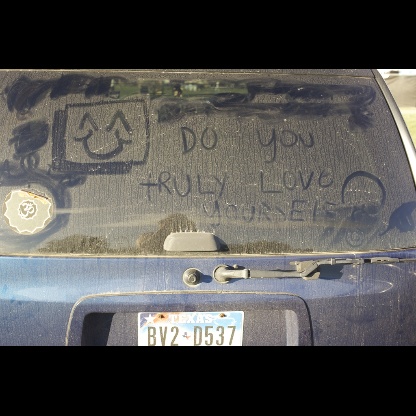 DO YOU
TRULY LOVE
YOURSELF
ॐ
TEXAS
BV2 D537